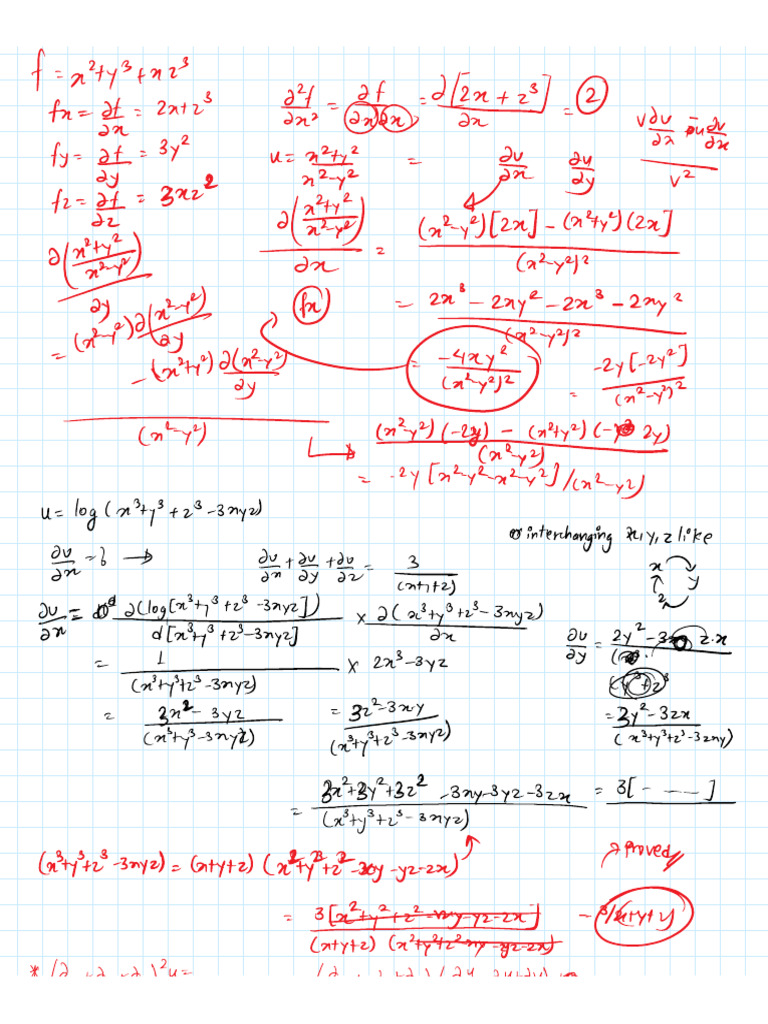 f = x²+y³+xz³
fx = ∂f/∂x = 2x+z³
∂²f/∂x² = ∂f/∂x∂x = ∂[2x+z³]/∂x = 2
fy = ∂f/∂y = 3y²
u = x²+y²/x²-y² = ∂u/∂x ∂u/∂y
v∂u/∂x - u∂v/∂x / v²
fz = ∂f/∂z = 3xz²
∂(x²+y²/x²-y²)/∂x = (x²-y²)[2x] - (x²+y²)(2x) / (x²-y²)²
∂(x²+y²/x²-y²)/∂y
fx
= 2x³ - 2xy² - 2x³ - 2xy² / (x²-y²)²
= (x²-y²)∂(x²-y²)/∂y
- (x²+y²)∂(x²-y²)/∂y
(x²-y²)
= -4xy²/(x²-y²)²
= -2y[-2y²]/(x²-y²)²
(x²-y²)(-2y) - (x²+y²)(- 2y) / (x²-y²)
= -2y[x²-y²-x²-y²]/(x²-y²)
u = log(x³+y³+z³-3xyz)
interchanging x,y,z like
∂u/∂x = ? →
∂u/∂x + ∂u/∂y + ∂u/∂z = 3/(x+y+z)
x
y
z
∂u/∂x = ∂(log[x³+y³+z³-3xyz])/∂[x³+y³+z³-3xyz] × ∂(x³+y³+z³-3xyz)/∂x
∂u/∂y = 2y²-3 z.x
= 1/(x³+y³+z³-3xyz) × 2x³-3yz
(y³+z³
= 3x²-3yz/(x³+y³-3xyz)
= 3z²-3xy/(x³+y³+z³-3xyz)
= 3y²-3zx/(x³+y³+z³-3zxy)
= 3x²+3y²+3z² -3xy-3yz-3zx/(x³+y³+z³-3xyz) = 3[- - - -]
(x³+y³+z³-3xyz) = (x+y+z)(x²+y²+z²-xy-yz-zx)
Proved
= 3[x²+y²+z²-xy-yz-zx]/(x+y+z)(x²+y²+z²-xy-yz-zx)
- 3/x+y+y